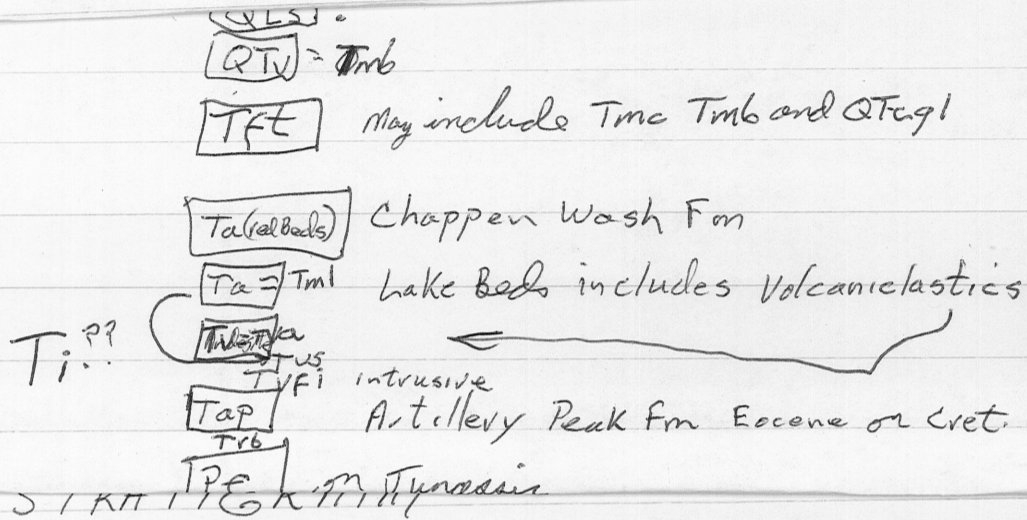 QLS
QTv = Tmb
Tft May include Tmc Tmb and QTcgl
Ta (red Beds) Chappen Wash Fm
Ta = Tml Lake Beds includes Volcaniclastics
Ti??
Tvs
Tvfi intrusive
Tap Artillery Peak Fm Eocene or Cret.
Trb